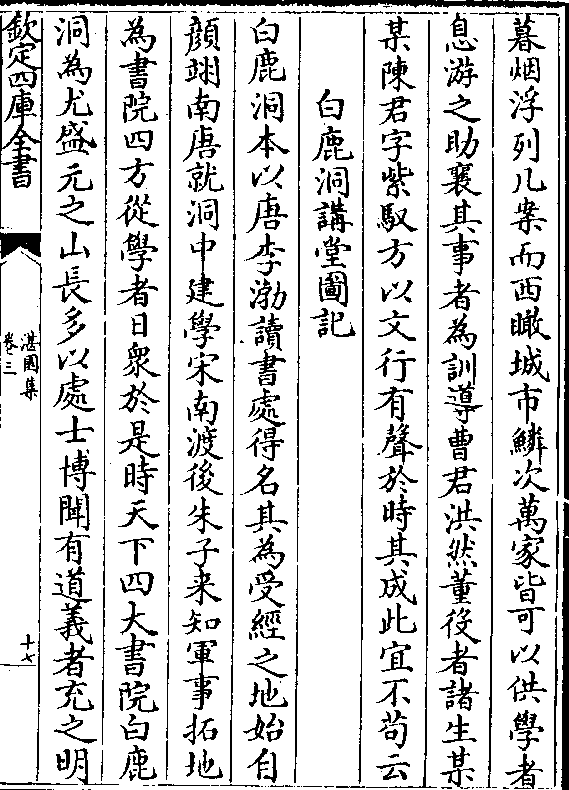 暮烟浮列几案而西瞰城市鱗次萬家皆可以供學者
息游之助襄其事者為訓導曹君洪然董役者諸生某
某陳君字紫馭方以文行有聲於時其成此宜不苟云
白鹿洞講堂圖記
白鹿洞本以唐李渤讀書處得名其為受經之地始自
顔翊南唐就洞中建學宋南渡後朱子来知軍事拓地
為書院四方從學者日衆於是時天下四大書院白鹿
洞為尤盛元之山長多以處士博聞有道義者充之明
欽定四庫全書
湛園集
卷三
十七